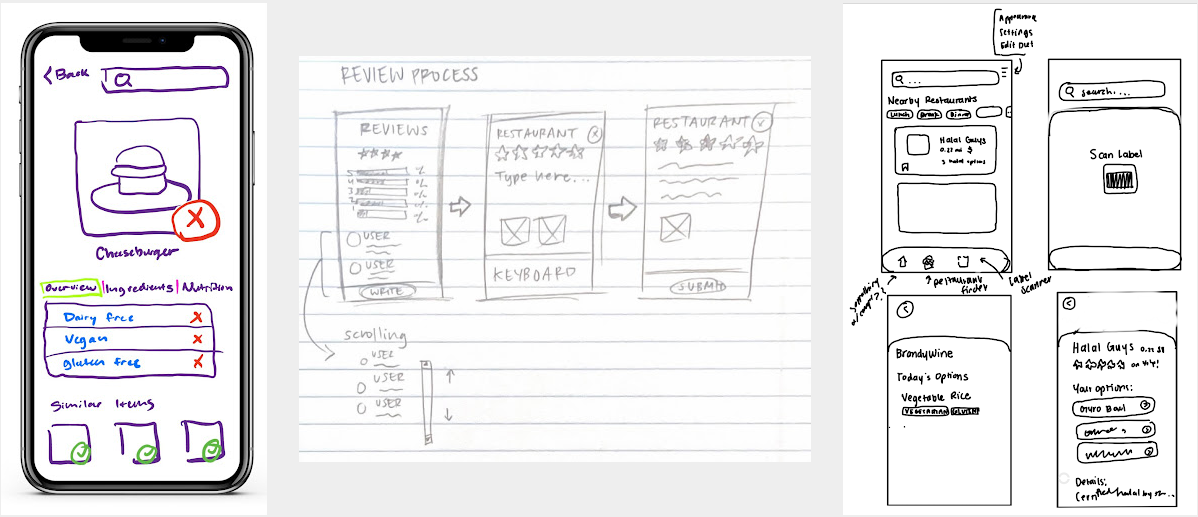 Back
Cheeseburger
Overview
Ingredients
Nutrition
Dairy free
Vegan
gluten free
Similar Items
REVIEW PROCESS
REVIEWS
5
%
4
%
3
%
2
%
1
%
USER
USER
WRITE
scrolling
USER
USER
USER
RESTAURANT
Type here...
KEYBOARD
RESTAURANT
SUBMIT
Appearance
Settings
Edit Diet
...
Nearby Restaurants
Lunch
Dinner
Halal Guys
0.22 mi $
3 halal options
restaurant
finder
label
scanner
search....
Scan Label
Brandywine
Today's Options
Vegetable Rice
VEGETARIAN
Halal Guys 0.22 $$
on Yelp!
Your options:
Gyro Bowl
Details:
Certified halal by